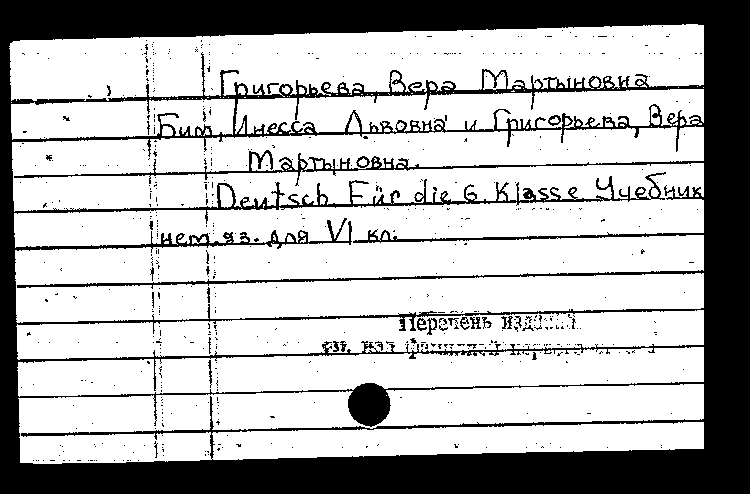 Григорьева, Вера Мартыновна
Бим, Инесса Львовна и Григорьева, Вера
Мартыновна.
Deutsch Für die 6. Klasse Учебник
нем. яз. для VI кл.
Перечень изданий
см. под фамилией первого